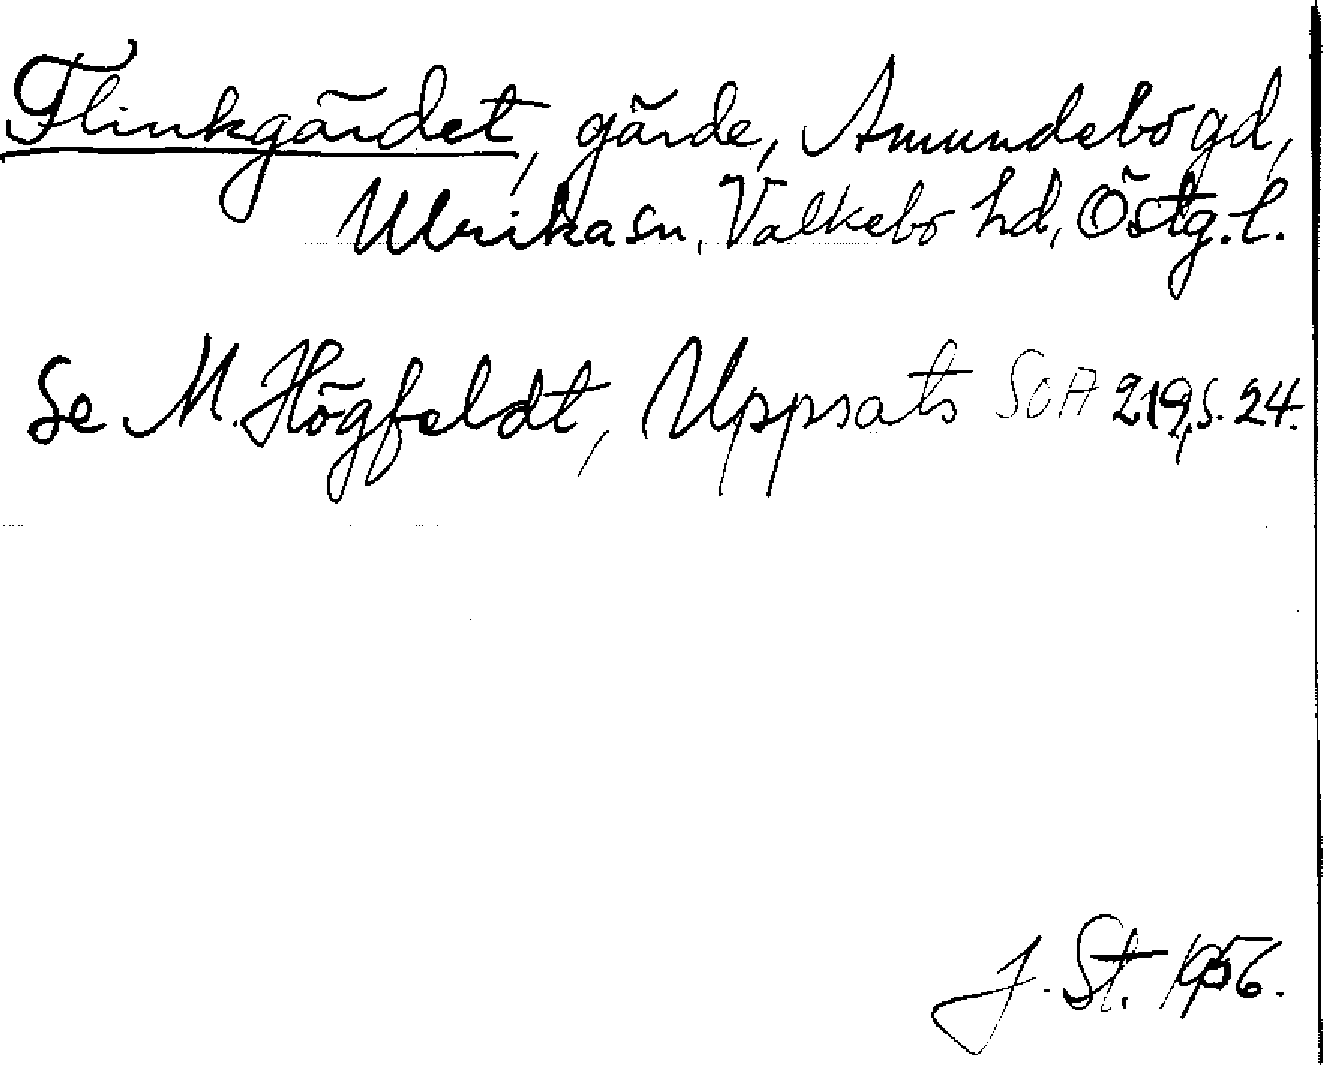 Flinkgärdet, gärde, Amundebo gd,
Ulrika sn, Valkebo hd, Östg. l.
Se M. Högfeldt, Uppsats SOA 219, s. 24.
J. St. 1956.